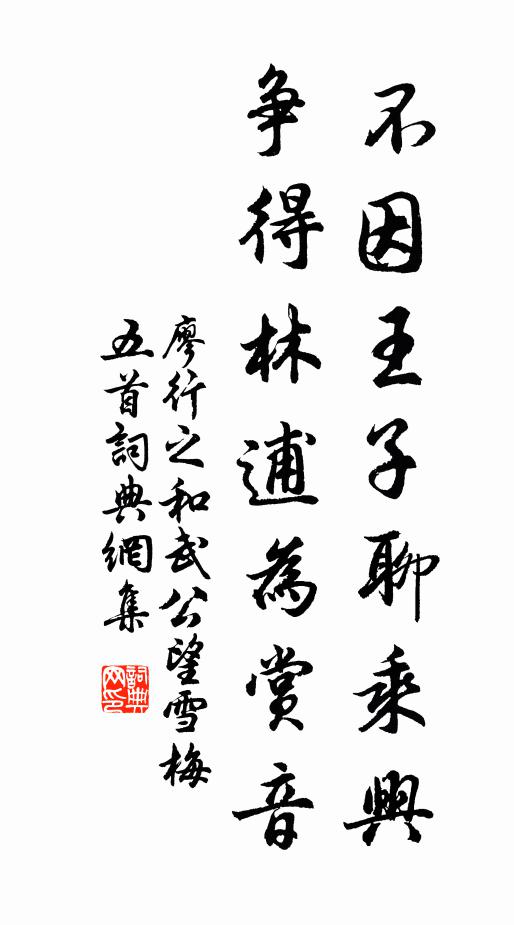 不因王子聊乘興
爭得林逋為賞音
廖行之和武公望雪梅
五首詞典網集
詞典网印